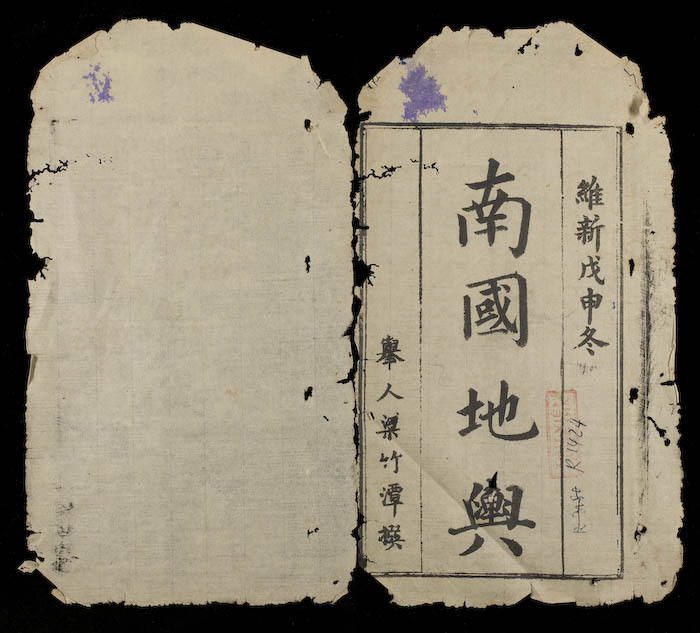 維新戊申冬
南國地輿
舉人梁竹潭撰
R.1924